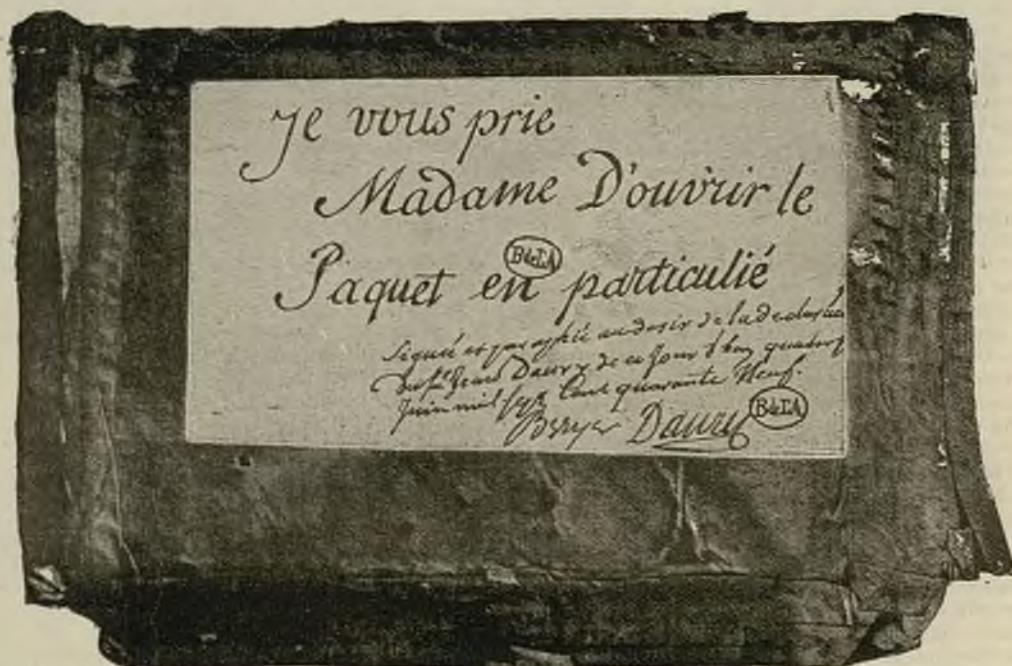 Je vous prie
Madame D'ouvrir le
Paquet en particulié
B&LA
Signé et paraphé au desir de la declaration
Daury de ce Jour d'huy quatorze
Juin mil sept Cent quarante Neuf.
Berryer Daury
B&LA